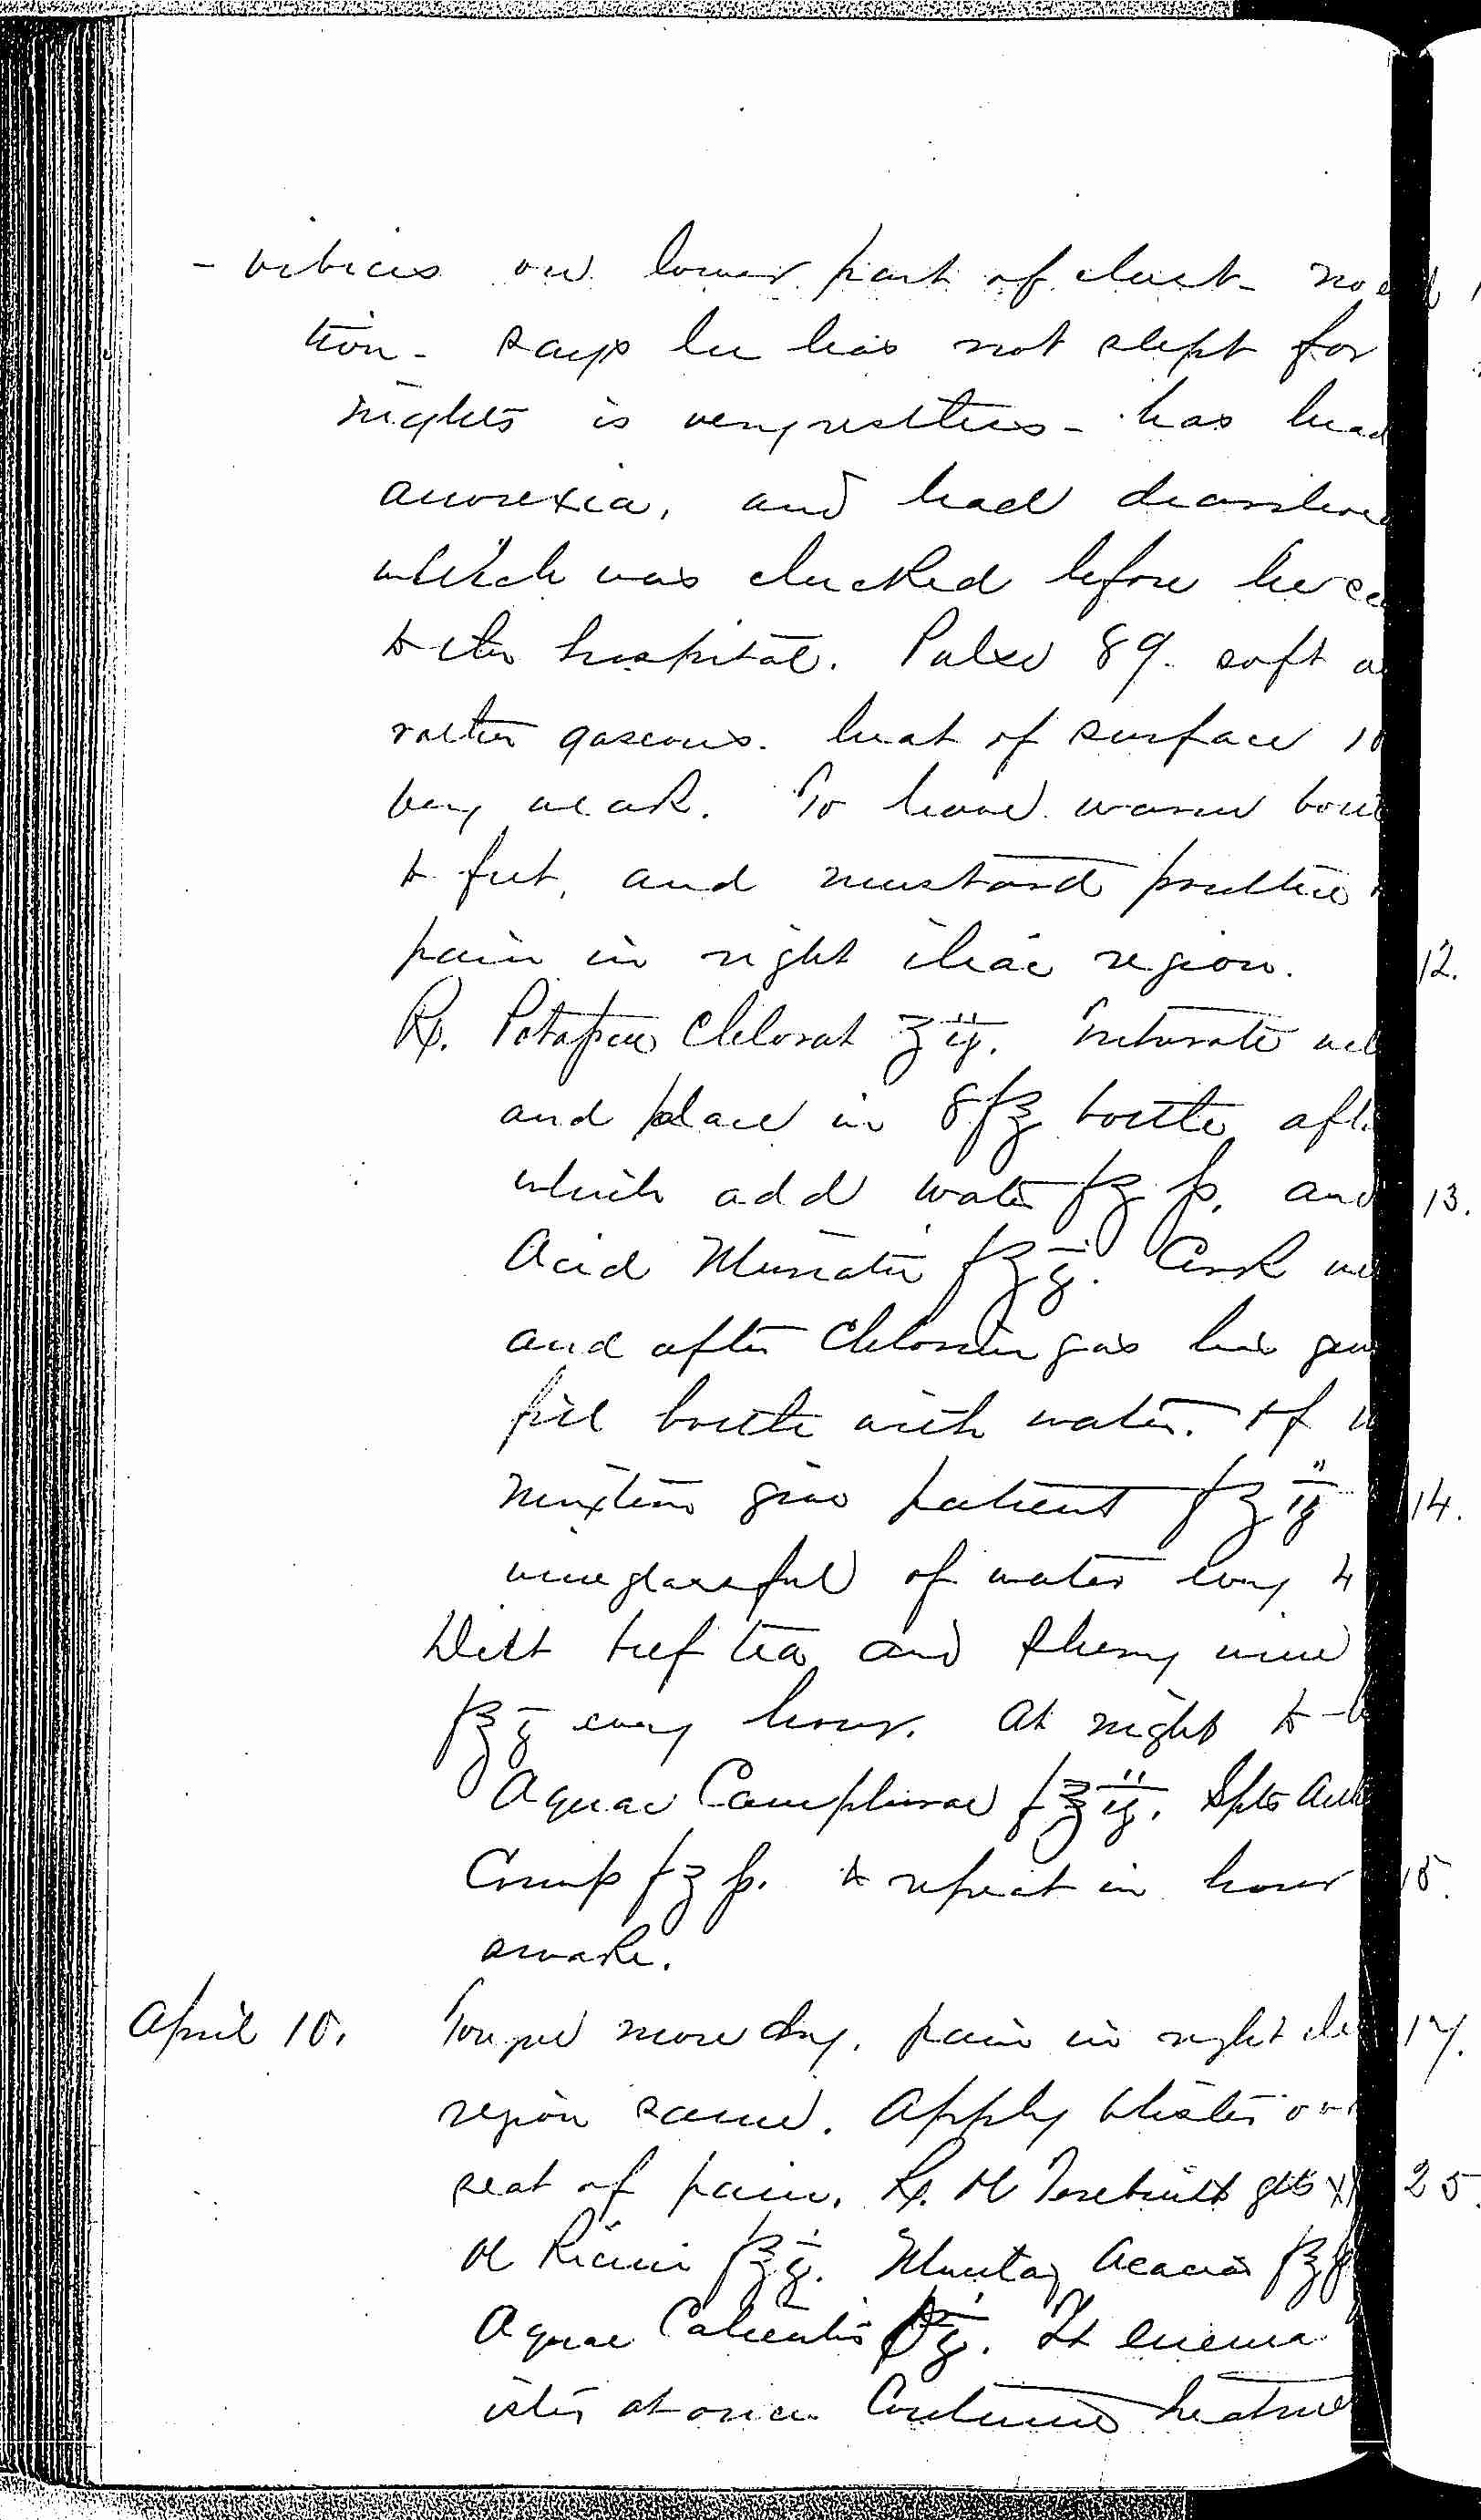 - vibices on lower part of chest - no e
tion - says he has not slept for
nights is very restless - has head
anorexia, and had diarrhoea
which was checked before he ca
to the hospital. Pulse 89. soft a
rather gaseous. heat of surface
very weak. To have warm bott
to feet, and mustard poultice
pain in right iliac region.
Rx. Potassae Chlorat ʒij. Triturate wel
and place in 8 f℥ bottle afte
which add water fʒ ss. and
Acid Muriatic fʒj. Cork we
and after Chlorine gas has gen
fill bottle with water. Of
mixture give patient fʒij
wineglassful of water every 4
Diet beef tea and sherry wine
f℥j every hour. At night to
Aquae Camphorae f℥ij. Spts Aeth
Comp fʒ ss. to repeat in hour
awake.
April 10. Tongue more dry. pain in right ile
region same. Apply blister ove
seat of pain. Rx. Ol Terebinth gtts xx
Ol Ricini f℥j. Mucilag Acaciae f℥ss
Aquae Calientis f℥j. Ft enema
ister at once. Continue treatme
12.
13.
14.
15.
17.
25.